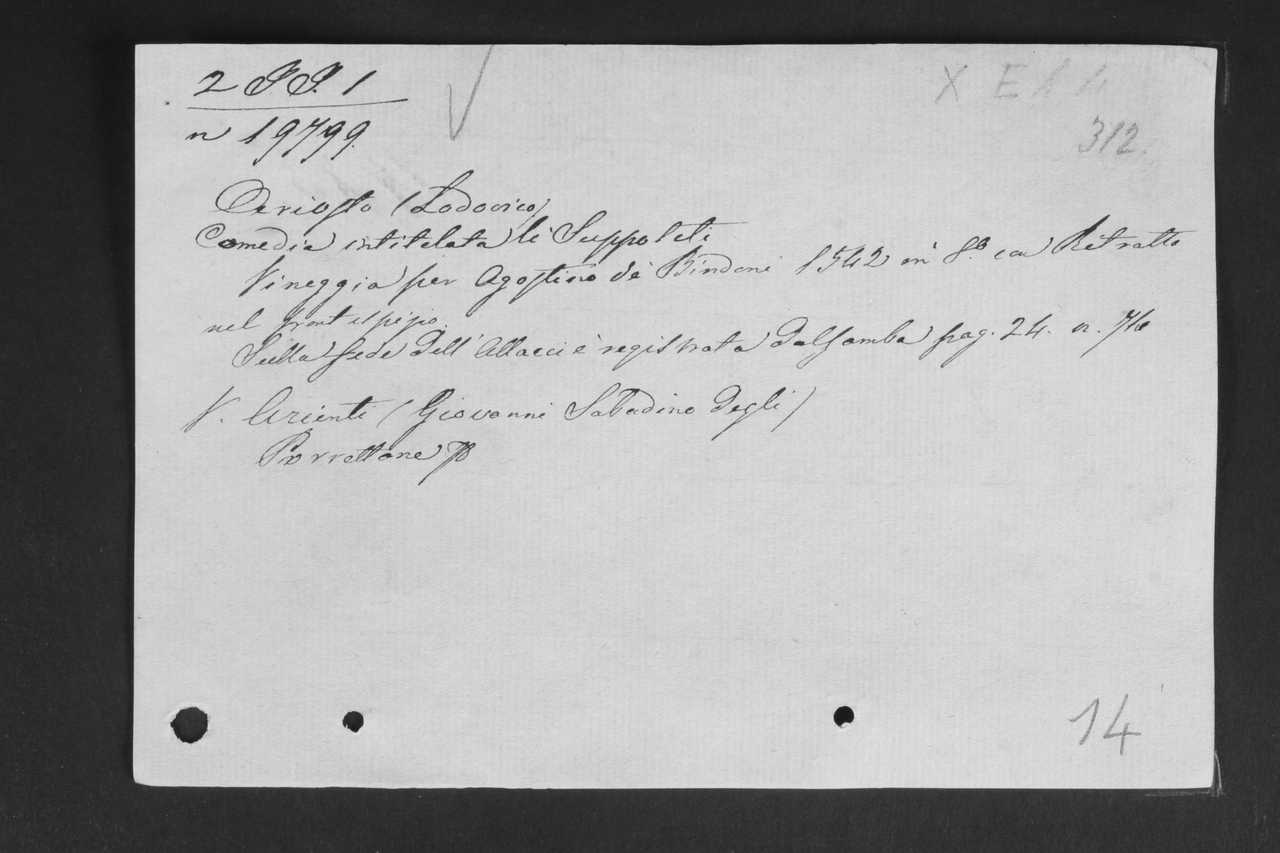 2 P.P. 1
n 19799.
X E
312.
Ariosto (Lodovico)
Comedia intitulata li Suppositi
Vineggia per Agostino de Bindoni 1542 in 8.° con Ritratto
nel frontespizio.
Sulla fede dell'Allacci è registrata dal Gamba pag. 24. n. 76
V. Arienti (Giovanni Sabadino degli)
Porrettane 78
14